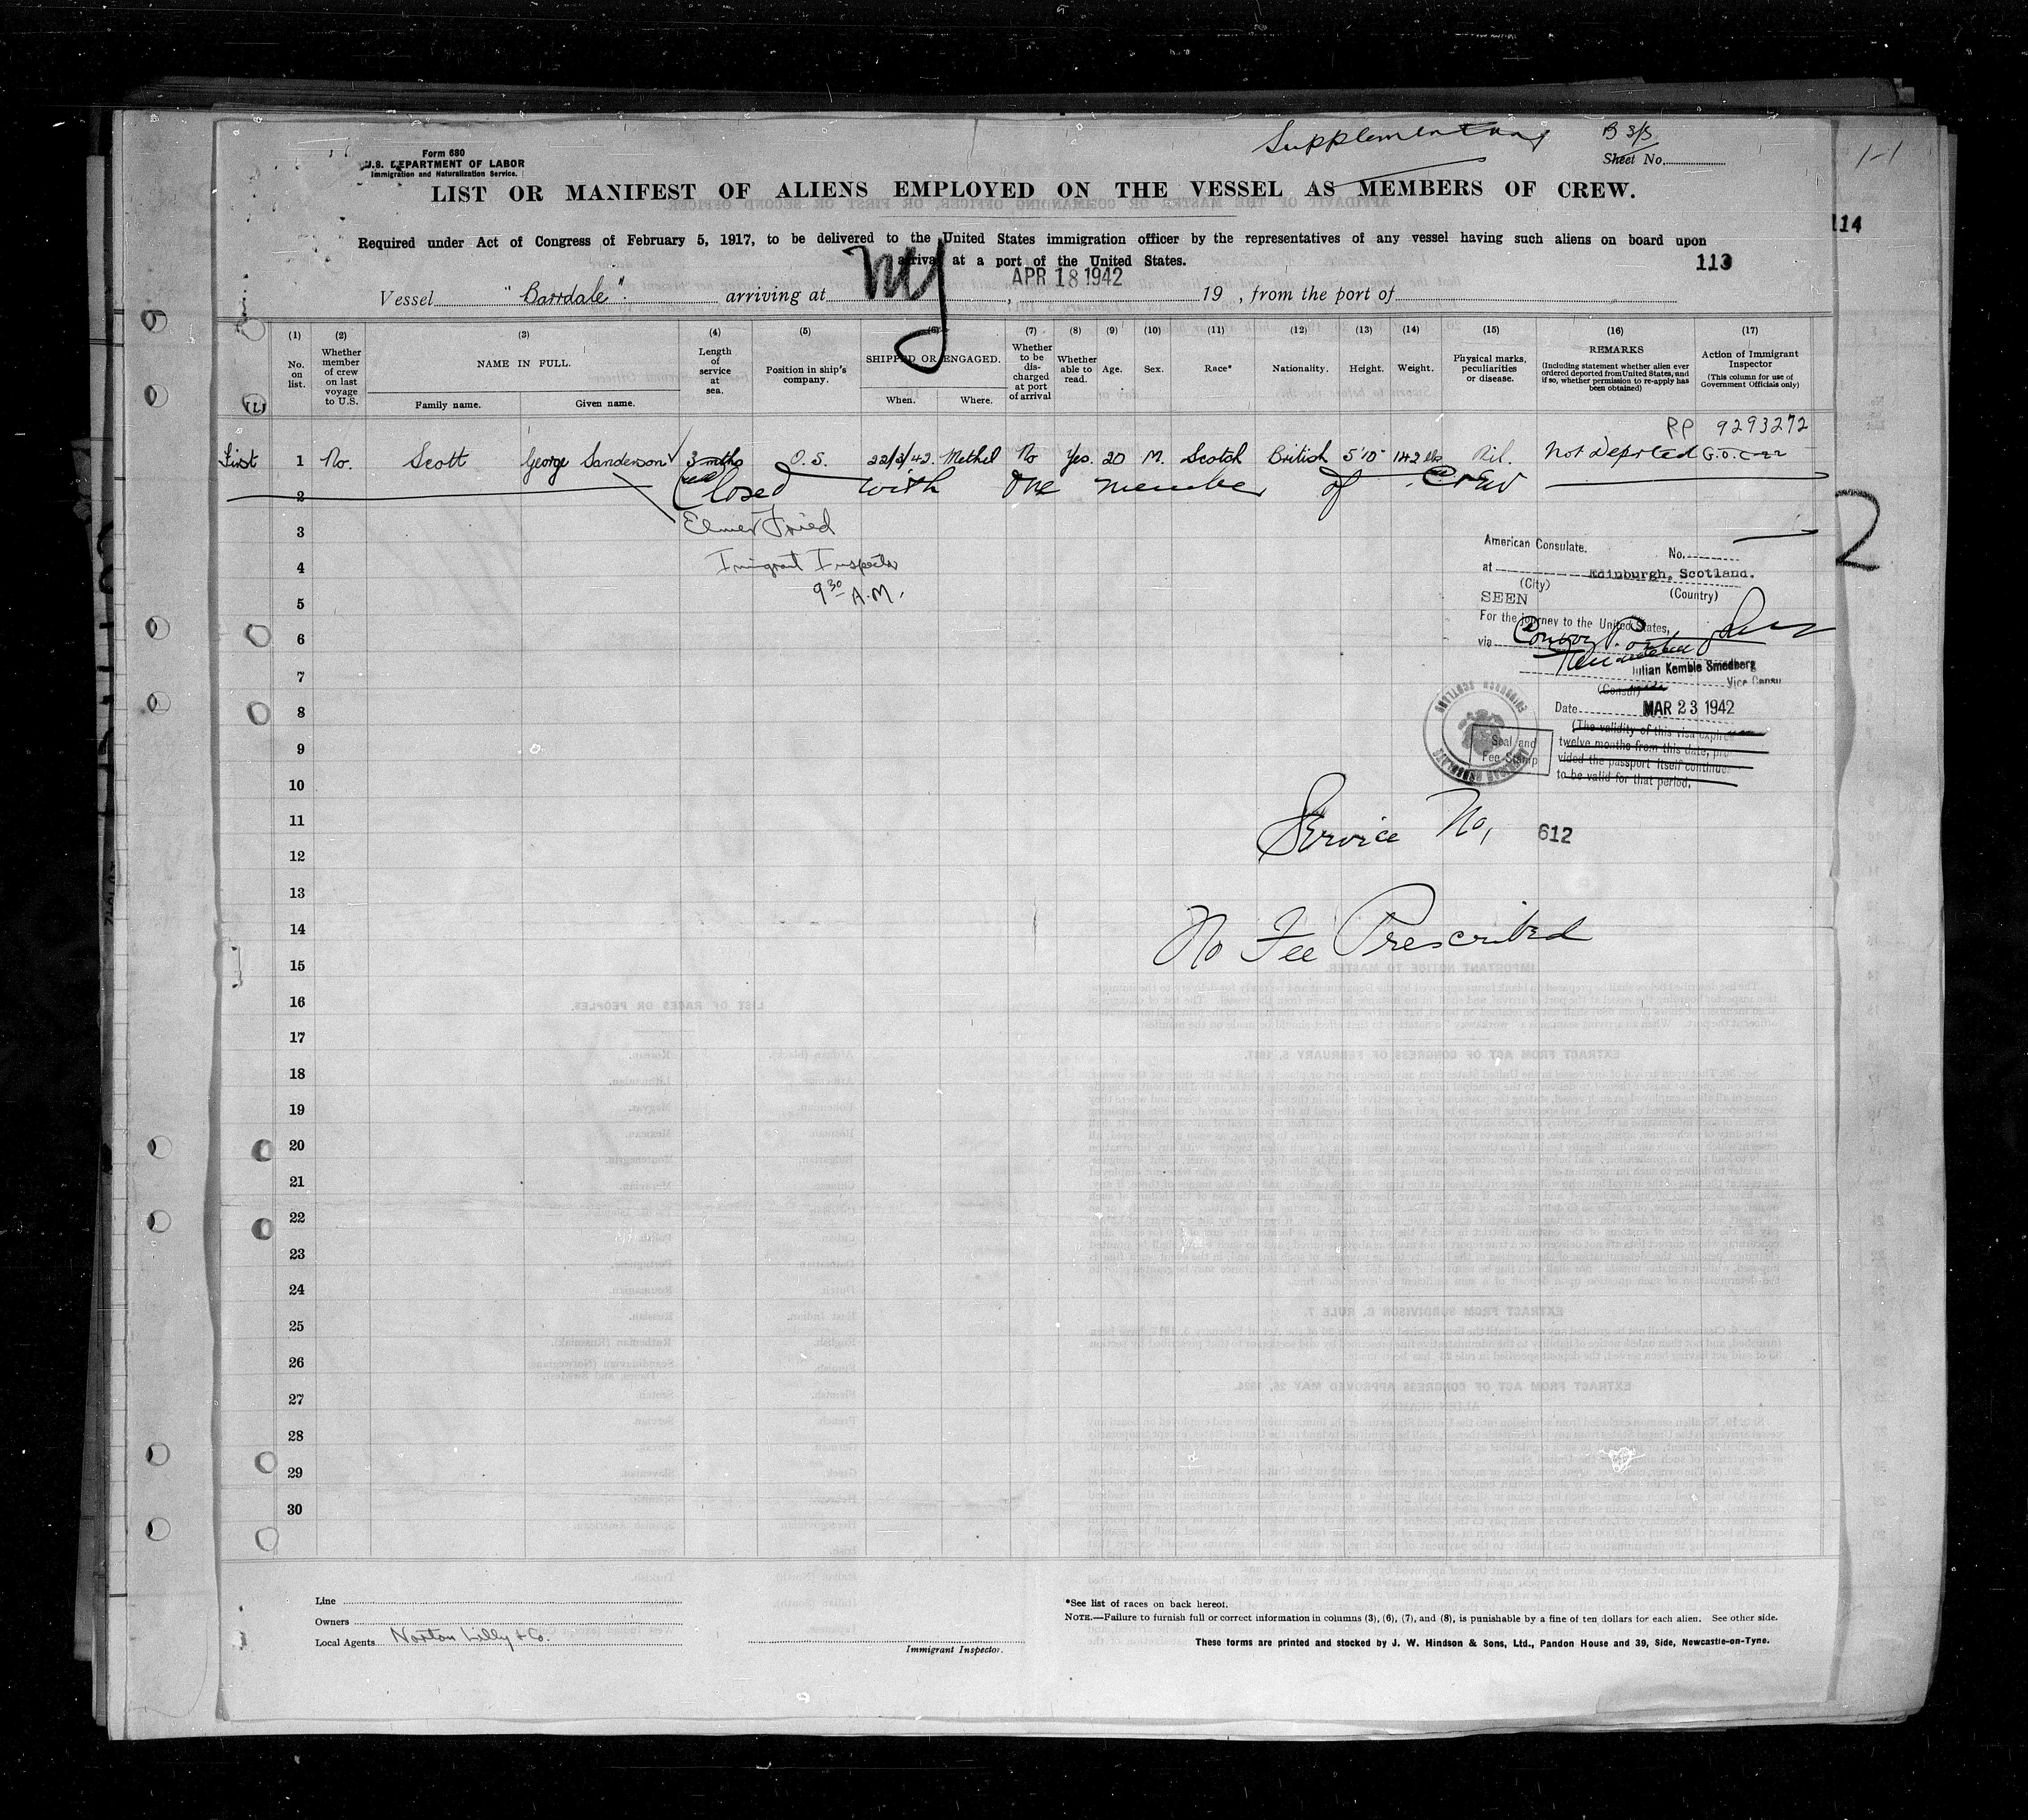 Supplementary
B 3/3
Sheet No.
1-1
Form 680
U.S. DEPARTMENT OF LABOR
Immigration and Naturalization Service.
LIST OR MANIFEST OF ALIENS EMPLOYED ON THE VESSEL AS MEMBERS OF CREW.
114
Required under Act of Congress of February 5, 1917, to be delivered to the United States immigration officer by the representatives of any vessel having such aliens on board upon
arrival at a port of the United States.
113
Vessel "Barrdale". arriving at NY, APR 18 1942 19 , from the port of
(1) (2) (3) (4) (5) (6) (7) (8) (9) (10) (11) (12) (13) (14) (15) (16) (17)
No. on list. Whether member of crew on last voyage to U.S. NAME IN FULL. Family name. Given name. Length of service at sea. Position in ship's company. SHIPPED OR ENGAGED. When. Where. Whether to be discharged at port of arrival Whether able to read. Age. Sex. Race* Nationality. Height. Weight. Physical marks, peculiarities or disease. REMARKS (Including statement whether alien ever ordered deported from United States, and if so, whether permission to re-apply has been obtained) Action of Immigrant Inspector (This column for use of Government Officials only)
(L)
RP 9293272
First 1 No. Scott George Sanderson 3 mths O.S. 22/3/42. Methil No Yes. 20 M. Scotch British 5'10" 142 lbs Nil. Not Deported
2 Closed with one member of Crew
3 Elmer Fried
4 Imigrant Inspector
5 9 30 A.M.
2
American Consulate.
No.
at Edinburgh, Scotland.
(City) (Country)
SEEN
For the journey to the United States,
via
Julian Kemble Smedberg
Vice Consu
(Consul)
Date MAR 23 1942
(The validity of this visa expires
twelve months from this date, pro
vided the passport itself continue
to be valid for that period.
Seal and
Fee Stamp
6
7
8
9
10
11
Service No, 612
12
13
14
No Fee Prescribed
15
16
17
18
19
20
21
22
23
24
25
26
27
28
29
30
Line
Owners
Local Agents Norton Lilly & Co.
Immigrant Inspector.
*See list of races on back hereof.
NOTE.—Failure to furnish full or correct information in columns (3), (6), (7), and (8), is punishable by a fine of ten dollars for each alien. See other side.
These forms are printed and stocked by J. W. Hindson & Sons, Ltd., Pandon House and 39, Side, Newcastle-on-Tyne.